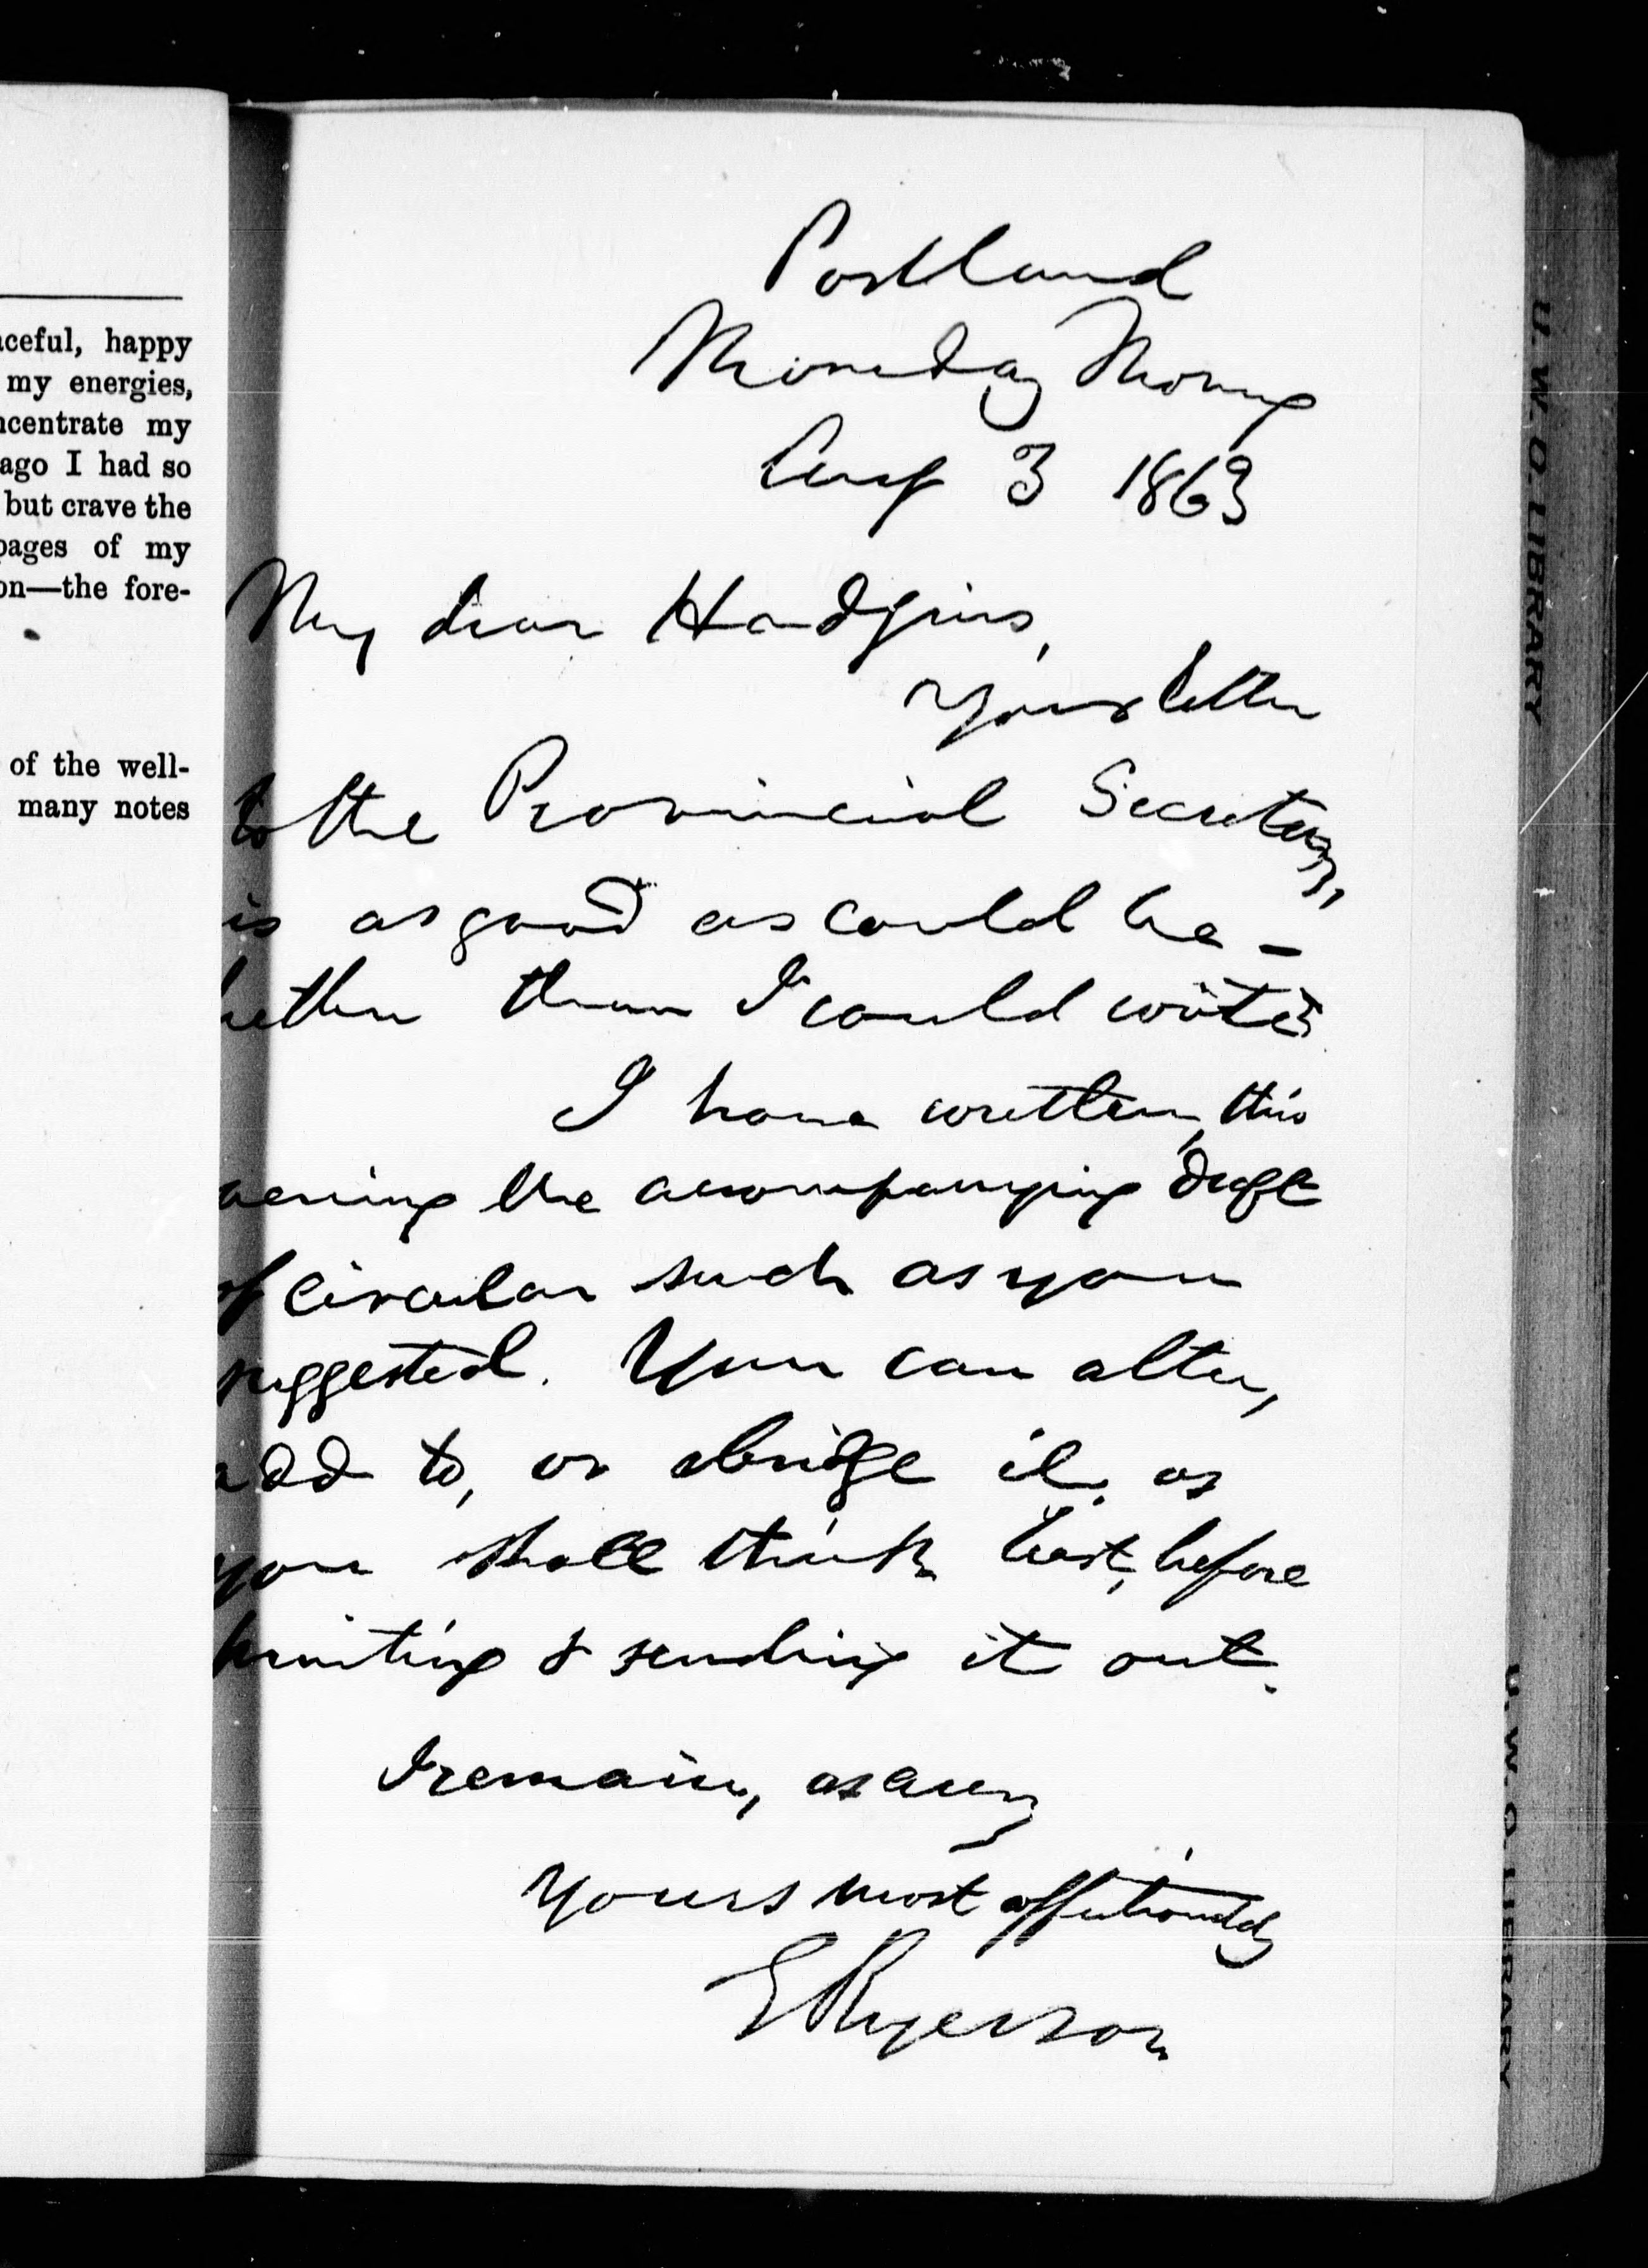 ceful, happy
my energies,
ncentrate my
ago I had so
but crave the
pages of my
on—the fore-
of the well-
many notes
Portland
Monday Morng
Aug 3 1863
My dear Hodgins,
Your letter
to the Provincial Secretary,
is as good as could be –
better than I could write.
I have written, this
evening the accompanying draft
of circular such as you
suggested. You can alter,
add to, or abridge it, as
you shall think best, before
printing & sending it out.
I remain, as ever,
Yours most affectionately
E Ryerson
U. W. O. LIBRARY
U. W. O. LIBRARY